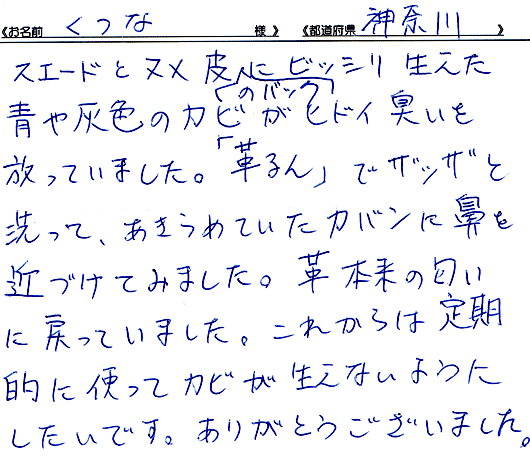 《お名前 くつな 様》《都道府県 神奈川 》
スエードとヌメ皮のバックにビッシリ生えた
青や灰色のカビがヒドイ臭いを
放っていました。「革るん」でザッザと
洗って、あきらめていたカバンに鼻を
近づけてみました。革本来の匂い
に戻っていました。これからは定期
的に使ってカビが生えないように
したいです。ありがとうございました。